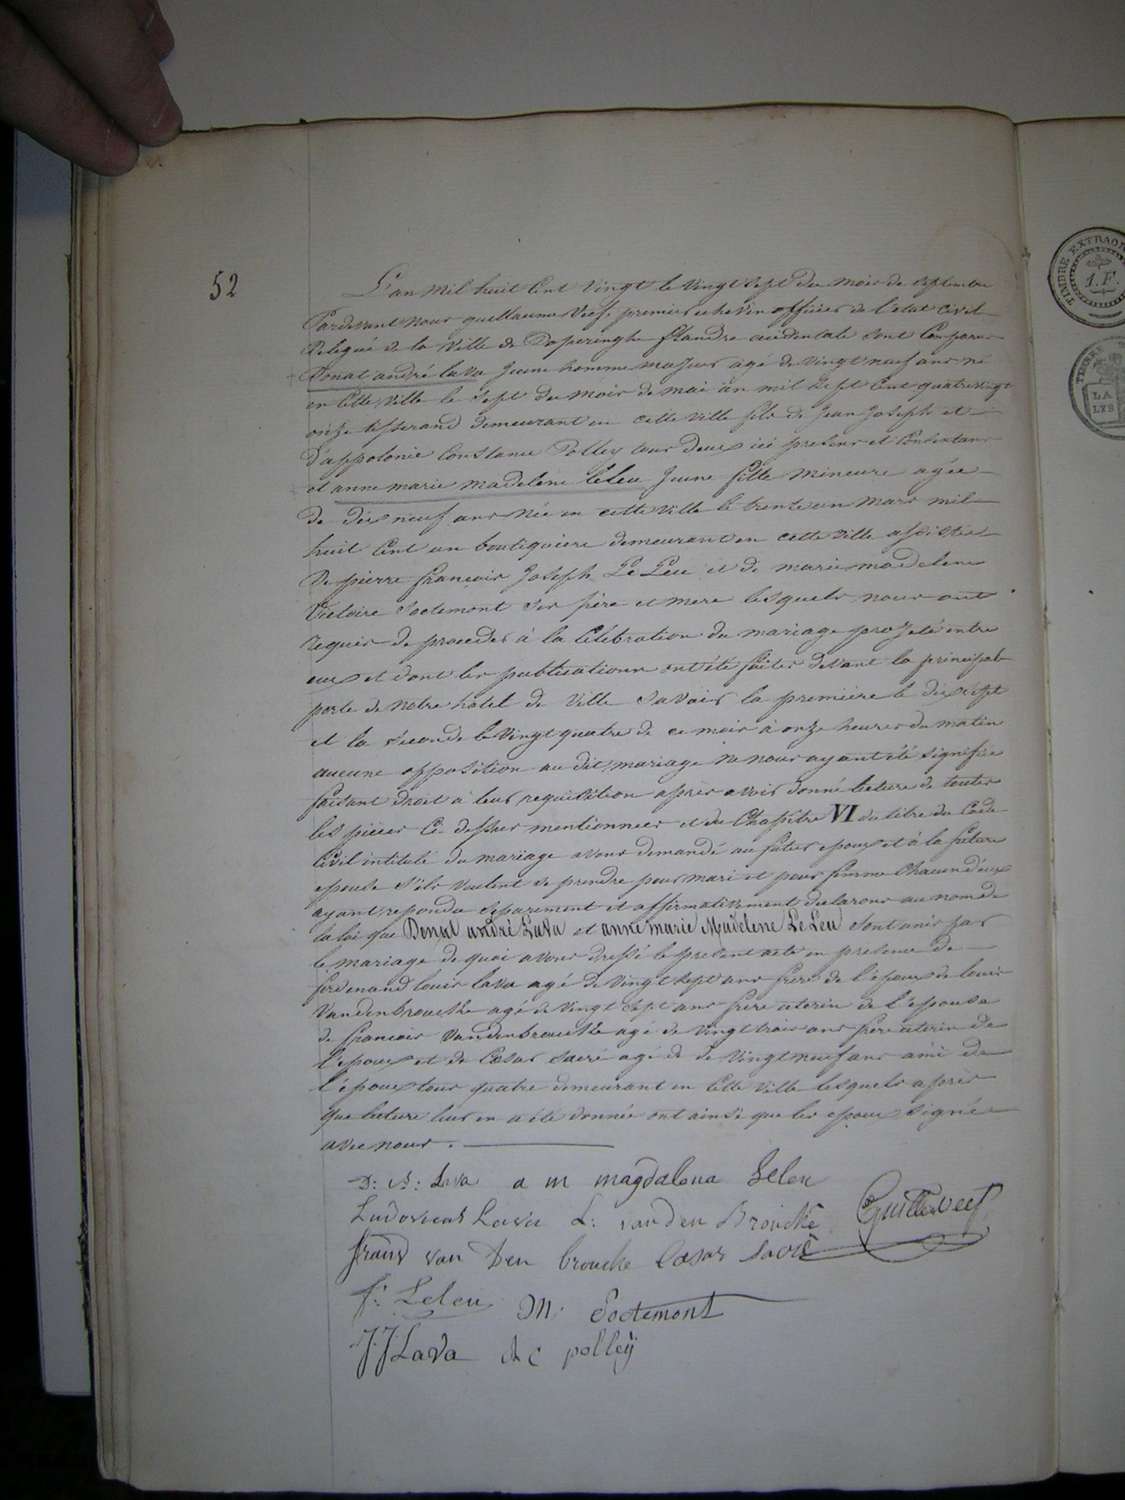 52
L'an mil huit Cent vingt le vingt sept du mois de septembre
Pardevant nous guillaume Veef, premier echevin officier de l'etat civil
Delegué de la Ville de Poperinghe flandre occidentale sont Comparus
Donat andré lava Jeune homme majeur agé de vingt neuf ans né
en cette Ville le sept du mois de mai an mil sept Cent quatre vingt
onze tisserand demeurant en cette ville fils de Jean Joseph et
d'appolonie Constance Polley tous deux ici presens et Consentans
et anne marie madeleine leleu Jeune fille mineure agée
de dix neuf ans Née en cette Ville le trente un mars mil
huit Cent un boutiquiere demeurant en cette ville assistée
de pierre françois Joseph Le Leu et de marie madelene
Victoire Soctemont ses père et mere lesquels nous ont
requis de proceder à la Célébration du mariage projeté entre
eux et dont les publications ont été faites devant la principale
porte de notre hôtel de Ville Savoir la premiére le dix sept
et la seconde le Vingt quatre de ce mois à onze heures du matin
aucune opposition au dit mariage ne nous ayant été signifiée
faisant droit à leur requisition après avoir donné lecture de toutes
les pièces Ci dessus mentionnées et du Chapitre VI du titre du Code
Civil intitulé du mariage avons demandé au futur epoux et à la future
epouse s'ils veulent se prendre pour mari et pour femme Chacun d'eux
ayant repondu separement et affirmativement declarons au nom de
la loi que Donat andré Lava et anne marie Madelene Le Leu sont unis par
le mariage de quoi avons dressé le present acte en presence de
ferdenand louis lava agé de Vingt sept ans frere de l'époux de louis
Vandenbroucke agé de Vingt sept ans frere uterin de l'epouse
de francois Vandenbroucke agé de Vingt trois ans frere uterin de
l'epoux et de Cæsar sacré agé de de Vingt neuf ans ami de
l'époux tous quatre demeurant en Cette Ville lesquels après
que lecture leur en a été donnée ont ainsi que les epoux signé
avec nous.
D: A: Lava a m magdalena Leleu
Ludovicus Lava L: van den Broucke Guille Veef
frans van Den broucke Cæsar Sacré
f: Leleu M: Soctemont
J: J Lava A C polleÿ
TIMBRE EXTRAOR
1. F.
LA
LYS